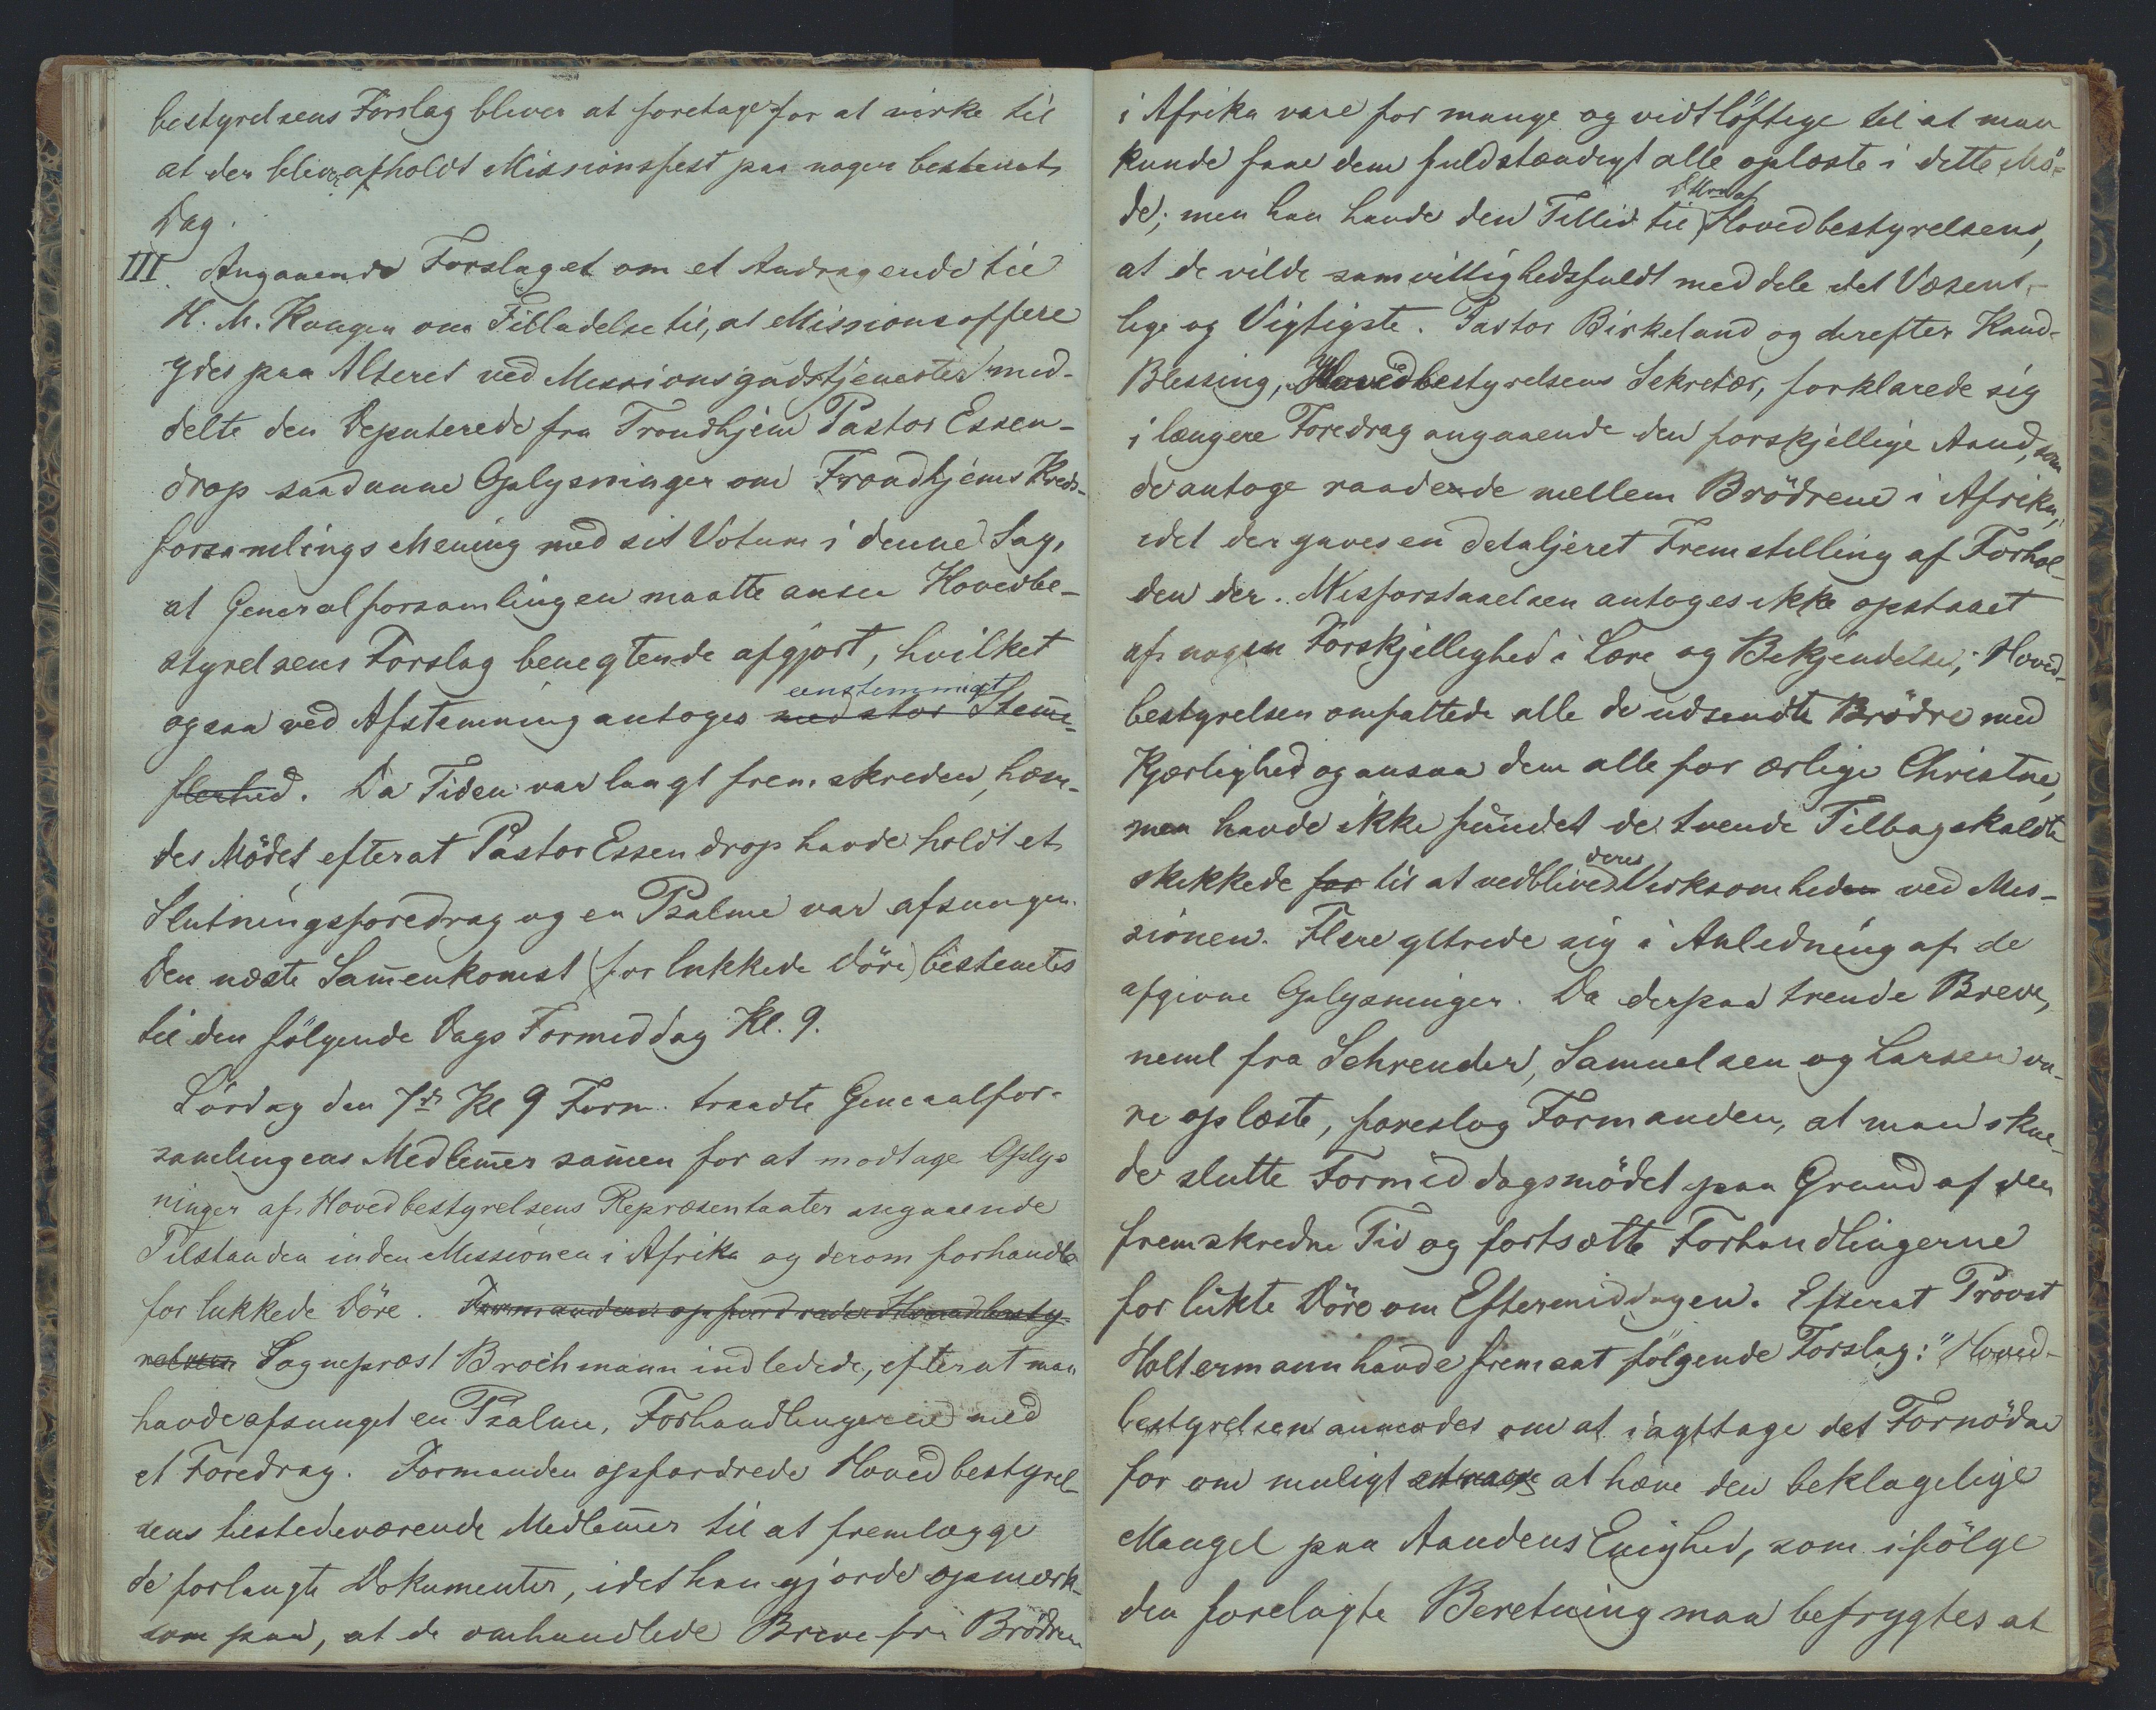 bestyrelsens Forslag bliver at foretage for at virke til
at der bliver afholdt Missionsfest paa nogen bestemt
Dag.
III. Angaaende Forslaget om et Andragende til
H. M. Kongen om Tilladelse til, at Missionsoffere
ydes paa Alteret ved Missionsgudstjenester med-
delte den Deputerede fra Trondhjem Pastor Essen-
drop saadanne Oplysninger om Trondhjems Kreds-
forsamlings Mening med sit Votum i denne Sag,
at Generalforsamlingen maatte ansee Hovedbe-
styrelsens Forslag benegtende afgjort, hvilket
eenstemmigt
ogsaa ved Afstemning antoges med stor Stem̄e-
flerhed. Da Tiden var langt fremskreden, hæve-
des Mödet efterat Pastor Essendrop havde holdt et
Slutningsforedrag og en Psalme var afsungen.
Den næste Sam̄enkomst (for lukkede Döre) bestemtes
til den fölgende Dags Formiddag Kl. 9.
Lördag den 7de Kl 9 Form. traadte Generalfor-
samlingens Medlem̄er sam̄en for at modtage Oplys
ninger af Hovedbestyrelsens Repræsentanter angaaende
Tilstanden inden Missionen i Afrika og derom forhandle
for lukkede Döre. Formanden opfordrede Hovedbesty-
relsen Sognepræst Brochmann indledede, efterat man
havde afsunget en Psalme, Forhandlingerne med
et Foredrag. Formanden opfordrede Hovedbestyrel-
sens tilstedeværende Medlem̄er til at fremlægge
de forlangte Dokumenter, idet han gjorde opmærk-
som paa, at de omhandlede Breve fra Brödrene
i Afrika vare for mange og vidtlöftige til at man
kunde faae dem fuldstændigt alle oplæste i dette Mö-
de; men han havde den Tillid til Hovedbestyrelsens,
at de vilde samvittighedsfuldt meddele det Væsent-
lige og Vigtigste. Pastor Birkeland og derefter Kand.
Blessing, Hovedbestyrelsens Sekretær, forklarede sig
i længere Foredrag angaaende den forskjellige Aand, som
de antoge raadende mellem Brödrene i Afrika,
idet der gaves en detaljeret Fremstilling af Forhol-
den der. Misforstaaelsen antoges ikke opstaaet
af nogen Forskjellighed i Lære og Bekjendelse; Hoved-
bestyrelsen omfattede alle de udsendte Brödre med
Kjærlighed og ansaa dem alle for ærlige Christne,
men havde ikke fundet de tvende Tilbagekaldte
deres
skikkede for til at vedblive Virksomheden ved Mis-
sionen. Flere yttrede sig i Anledning af de
afgivne Oplysninger. Da derpaa trende Breve,
neml fra Schreuder, Samuelsen og Larsen va-
re oplæste, foreslog Formanden, at man skul-
de slutte Formiddagsmödet paa Grund af den
fremskredne Tid og fortsætte Forhandlingerne
for lukte Döre om Eftermiddagen. Efterat Provst
Holtermann havde fremsat fölgende Forslag: "Hoved-
bestyrelsen anmodes om at iagttage det Fornödne
for om muligt at hæve den beklagelige
Mangel paa Aandens Enighed, som ifölge
den forelagte Beretning maa befrygtes at